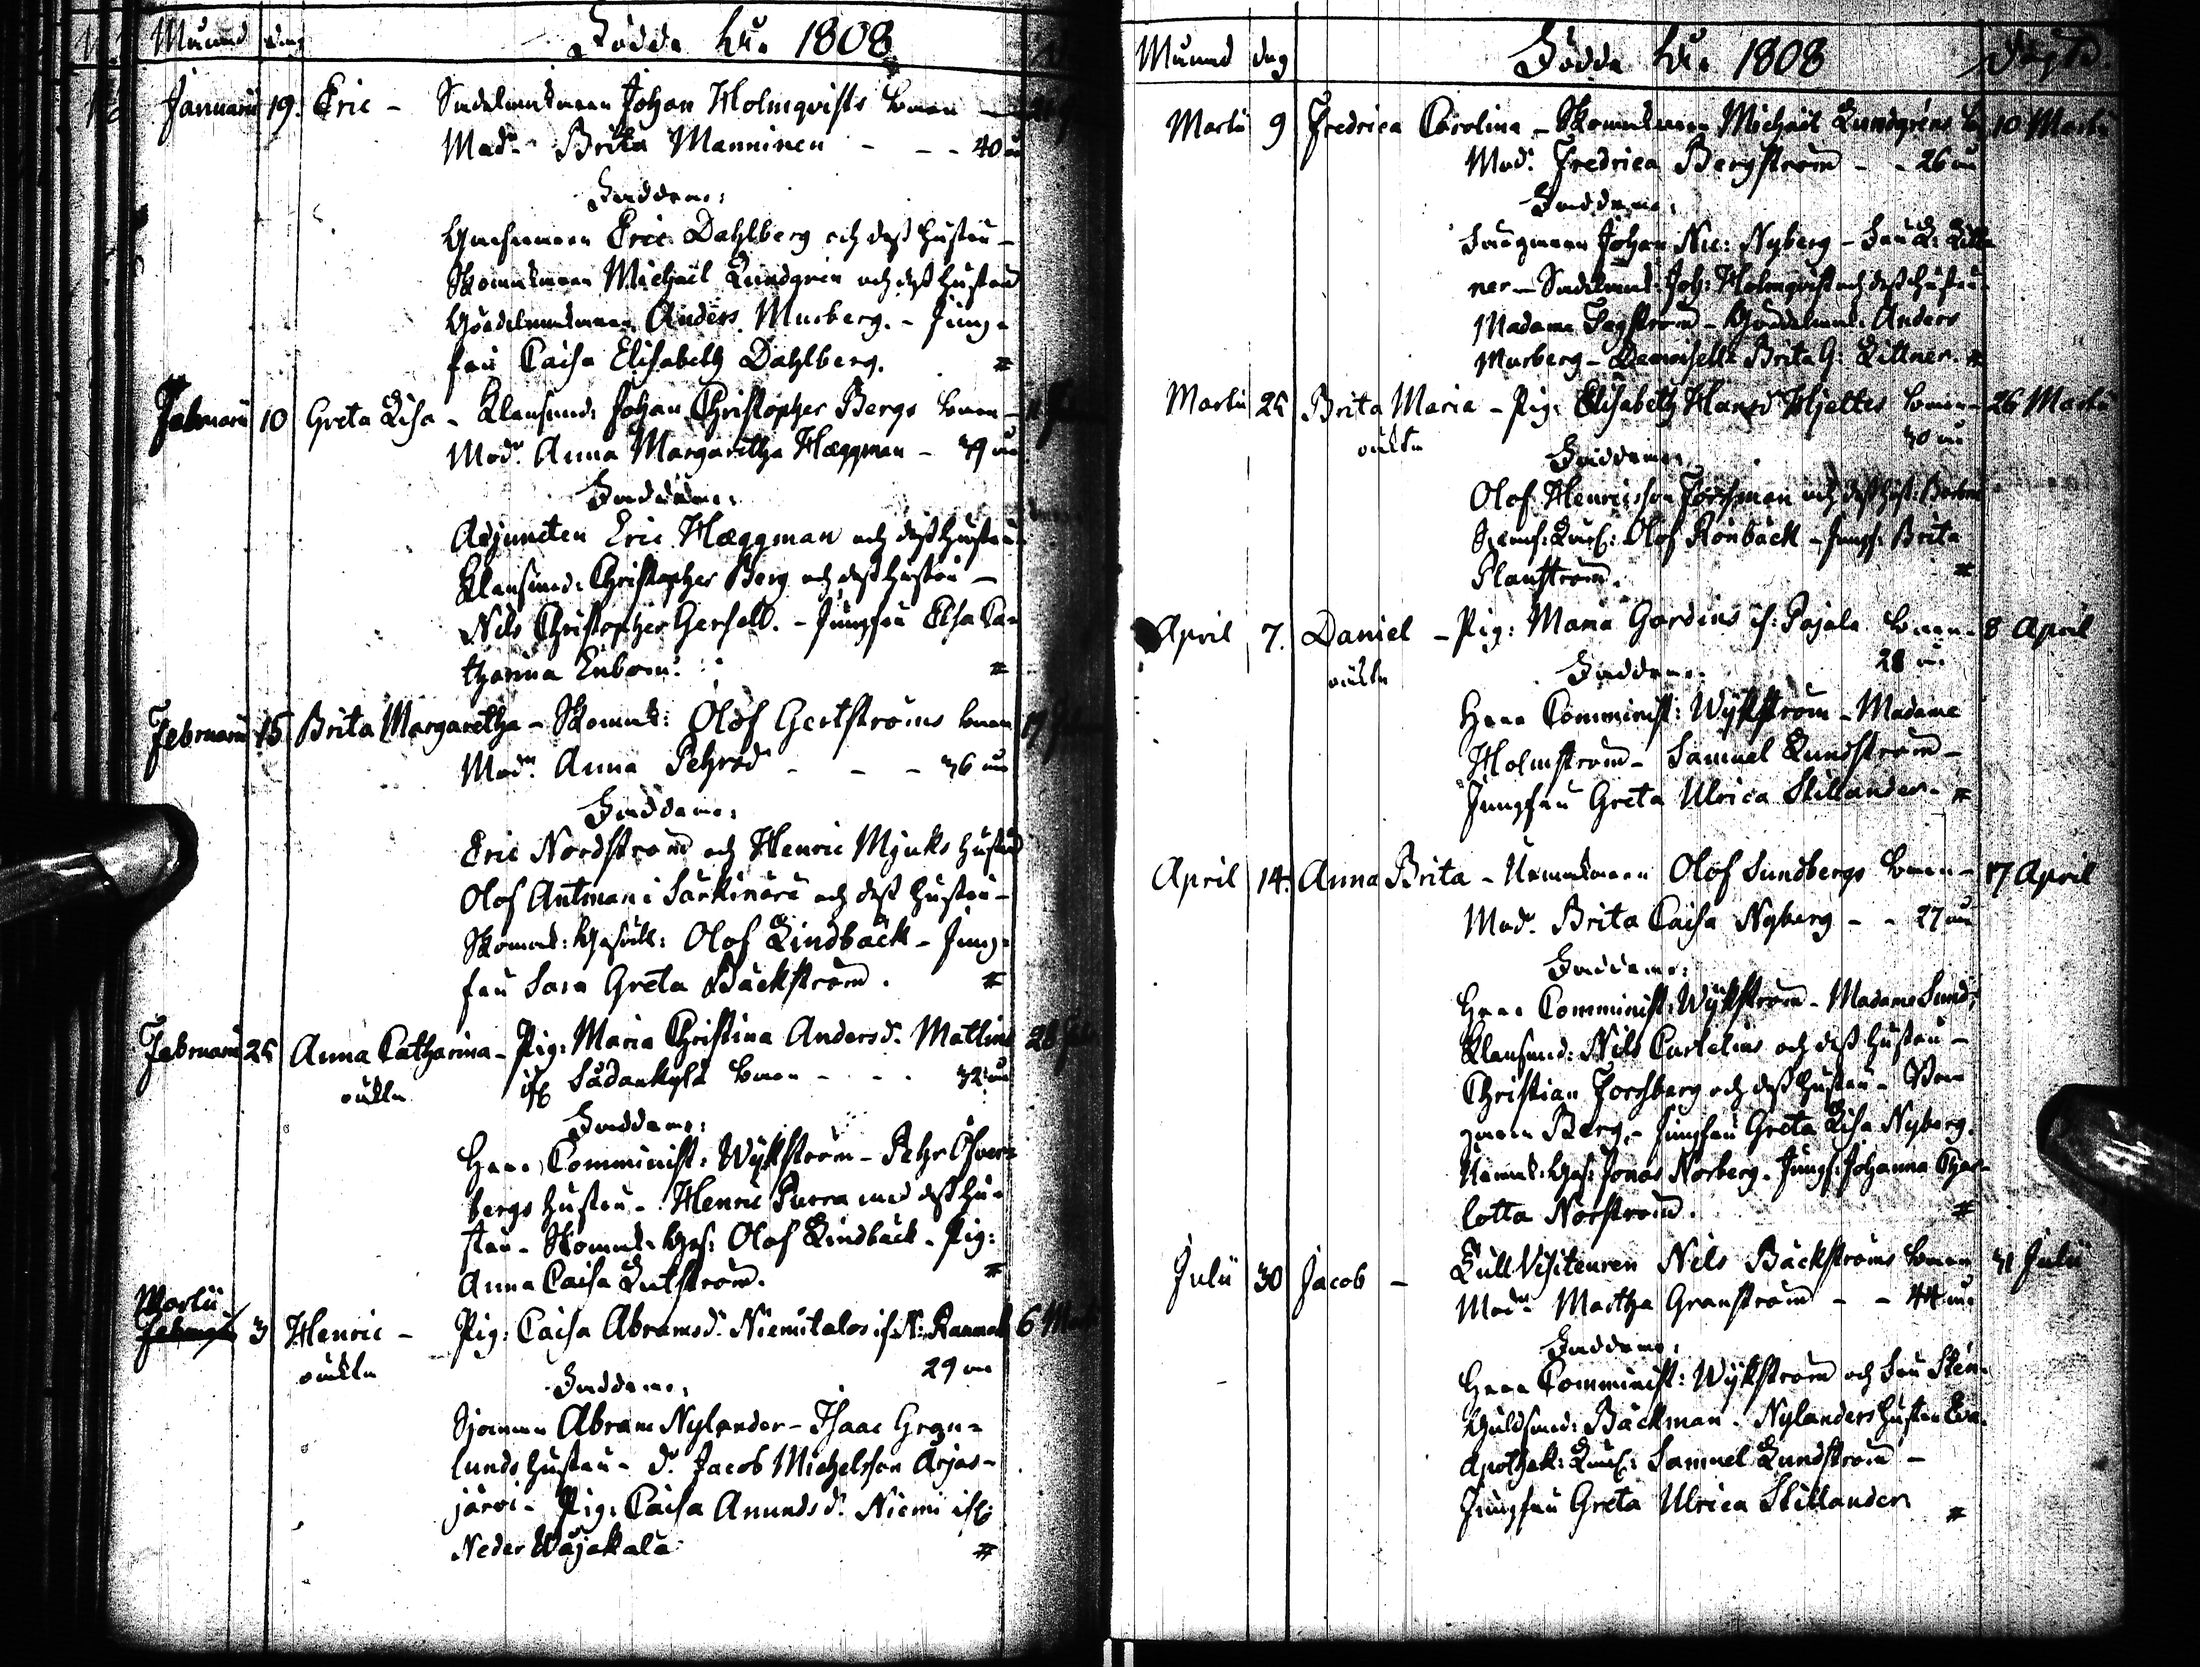 Månad dag Födde År 1808
Januarii 19. Eric - Sadelmakaren Johan Holmqvists barn -
Mod: Brita Manninen - - - 40 år
Faddrar:
Eric Dahlberg och dess hustru -
Skomakaren Michael Lundgren och dess hustru
Anders Murberg. - Jung-
fru Caisa Elisabeth Dahlberg. #
Februarii 10 Greta Lisa - Klensmed: Johan Christopher Bergs barn -
Mod: Anna Margaretha Hæggman - 39 år
Faddrar:
Adjuncten Eric Hæggman och dess hustru
Klensmed: Christopher Berg och dess hustru -
Nils Christopher Gersell. - Jungfru Elsa Ca-
tharina Enbom. #
Februarii 15 Brita Margaretha - Skomak: Olof Gertströms barn
Mod: Anna Pehrsd - - - 36 år
Faddrar:
Eric Nordström och Henric Mjuks hustru
Olof Antman i Särkinära och dess hustru -
Skomak: Gesäll: Olof Lindbäck - Jung-
fru Sara Greta Bäckström. #
Februarii 25 Anna Catharina - Pig: Maria Christina Andersd: Matlins 28
oäkta ifr Sådankylä barn - - - 32 år
Faddrar:
Herr Comminist: Wykström - Pehr Öfver-
bergs hustru - Henric Purra med dess hu-
stru - Skomak: Ges: Olof Lindbäck - Pig:
Anna Caisa Lutström. #
Martii
Februarii 3 Henric - Pig: Caisa Abramsd: Niemitalos if: N: 6
oäkta 29 år
Faddrar:
Sjöman Abram Nylander - Isaac Grön-
lunds hustru - d: Jacob Michelsson Arjas-
järvi - Pig: Caisa Anundsd: Niemi if:
Neder Wojakala #
Månad dag Födde År 1808 Döpte.
Martii 9 Fredrica Carolina - Skomakaren Michael Lundgréns b: 10 Martii
Mod: Fredrica Bergström - - 26 år
Faddrar:
Johan Nic: Nyberg - Fru L: Litt-
ner - Sadelmak: Joh: Holmqvist och dess hustru -
Madame Fagström - Anders
Murberg - Demoiselle Brita G: Littner. #
Martii 25 Brita Maria - Pig: Elisabeth Hansd: Hjettes barn - 26 Martii
oäkta 30 år
Faddrar:
Olof Henricsson Forsman och dess hust: Barbro
Olof Rönbäck - Jungf: Brita
Planström. #
April 7. Daniel - Pig: Maria Gardins if: Pajala barn - 8 April
oäkta 28 år
Faddrar:
Herr Comminist: Wykström - Madame
Holmström - Samuel Lundström -
Jungfru Greta Ulrica Stillander - #
April 14. Anna Brita - Olof Sundbergs barn - 17 April
Mod: Brita Caisa Nyberg - - 27 år
Faddrar:
Herr Comminist: Wykström - Madame Sund:
Klensmed: Nils Curtelius och dess hustru -
Christian Forssberg och dess hustru -
Berg - Jungfru Greta Lisa Nyberg.
Ges: Jonas Norberg - Jungf: Johanna Char-
lotta Norström. #
Julii 30 Jacob - Tull Visiteuren Nils Bäckströms barn 31 Julii
Mod: Martha Granström - - 44 år
Faddrar:
Herr Comminist: Wykström och Fru Sten-
Guldsmed: Bäckman - Nylanders hustru Eva.
Apothek: Samuel Lundström -
Jungfru Greta Ulrica Stillander #